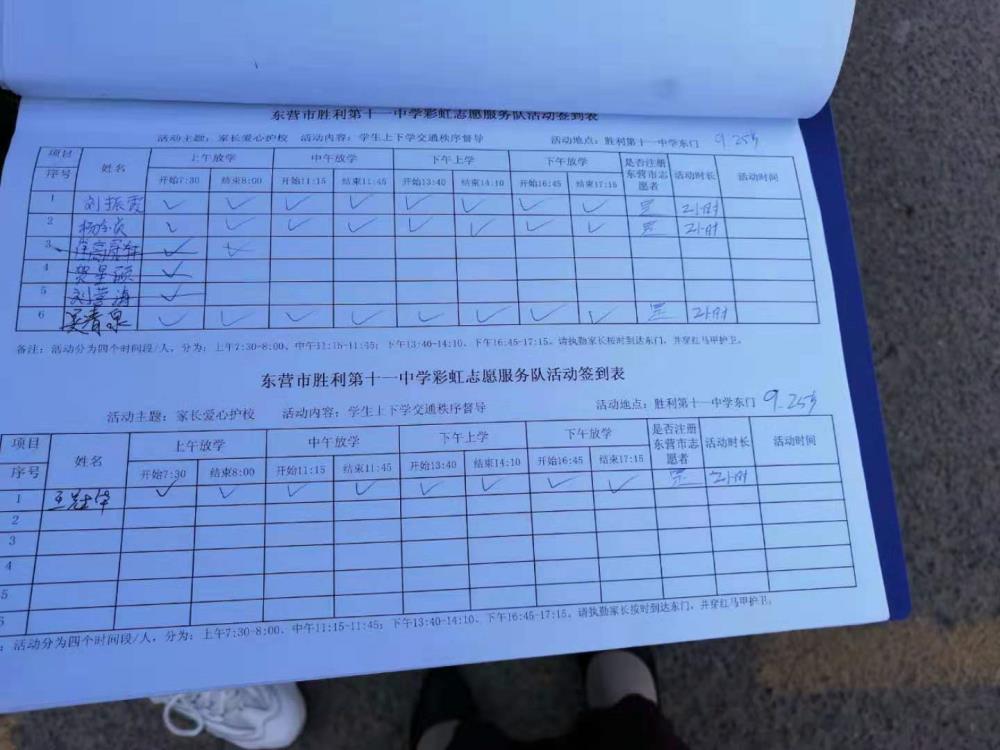 东营市胜利第十一中学彩虹志愿服务队活动签到表
活动主题：家长爱心护校 活动内容：学生上下学交通秩序督导 活动地点：胜利第十一中学东门 9.25号
项目 序号 姓名 上午放学 中午放学 下午上学 下午放学 是否注册东营市志愿者 活动时长 活动时间
开始7:30 结束8:00 开始11:15 结束11:45 开始13:40 结束14:10 开始16:45 结束17:15
1 刘振霞 ✓ ✓ ✓ ✓ ✓ ✓ ✓ ✓ 是 2小时
2 ✓ ✓ ✓ ✓ ✓ ✓ ✓ ✓ 是 2小时
3 ✓
4 贺星硕 ✓
5 ✓
6 吴青泉 ✓ ✓ ✓ ✓ ✓ ✓ ✓ ✓ 是 2小时
备注：活动分为四个时间段/人，分为：上午7:30-8:00、中午11:15-11:45；下午13:40-14:10、下午16:45-17:15。请执勤家长按时到达东门，并穿红马甲护卫。
东营市胜利第十一中学彩虹志愿服务队活动签到表
活动主题：家长爱心护校 活动内容：学生上下学交通秩序督导 活动地点：胜利第十一中学东门 9.25号
项目 序号 姓名 上午放学 中午放学 下午上学 下午放学 是否注册东营市志愿者 活动时长 活动时间
开始7:30 结束8:00 开始11:15 结束11:45 开始13:40 结束14:10 开始16:45 结束17:15
1 王冠华 ✓ ✓ ✓ ✓ ✓ ✓ ✓ ✓ 是 2小时
2
3
4
5
6
：活动分为四个时间段/人，分为：上午7:30-8:00、中午11:15-11:45；下午13:40-14:10、下午16:45-17:15。请执勤家长按时到达东门，并穿红马甲护卫。